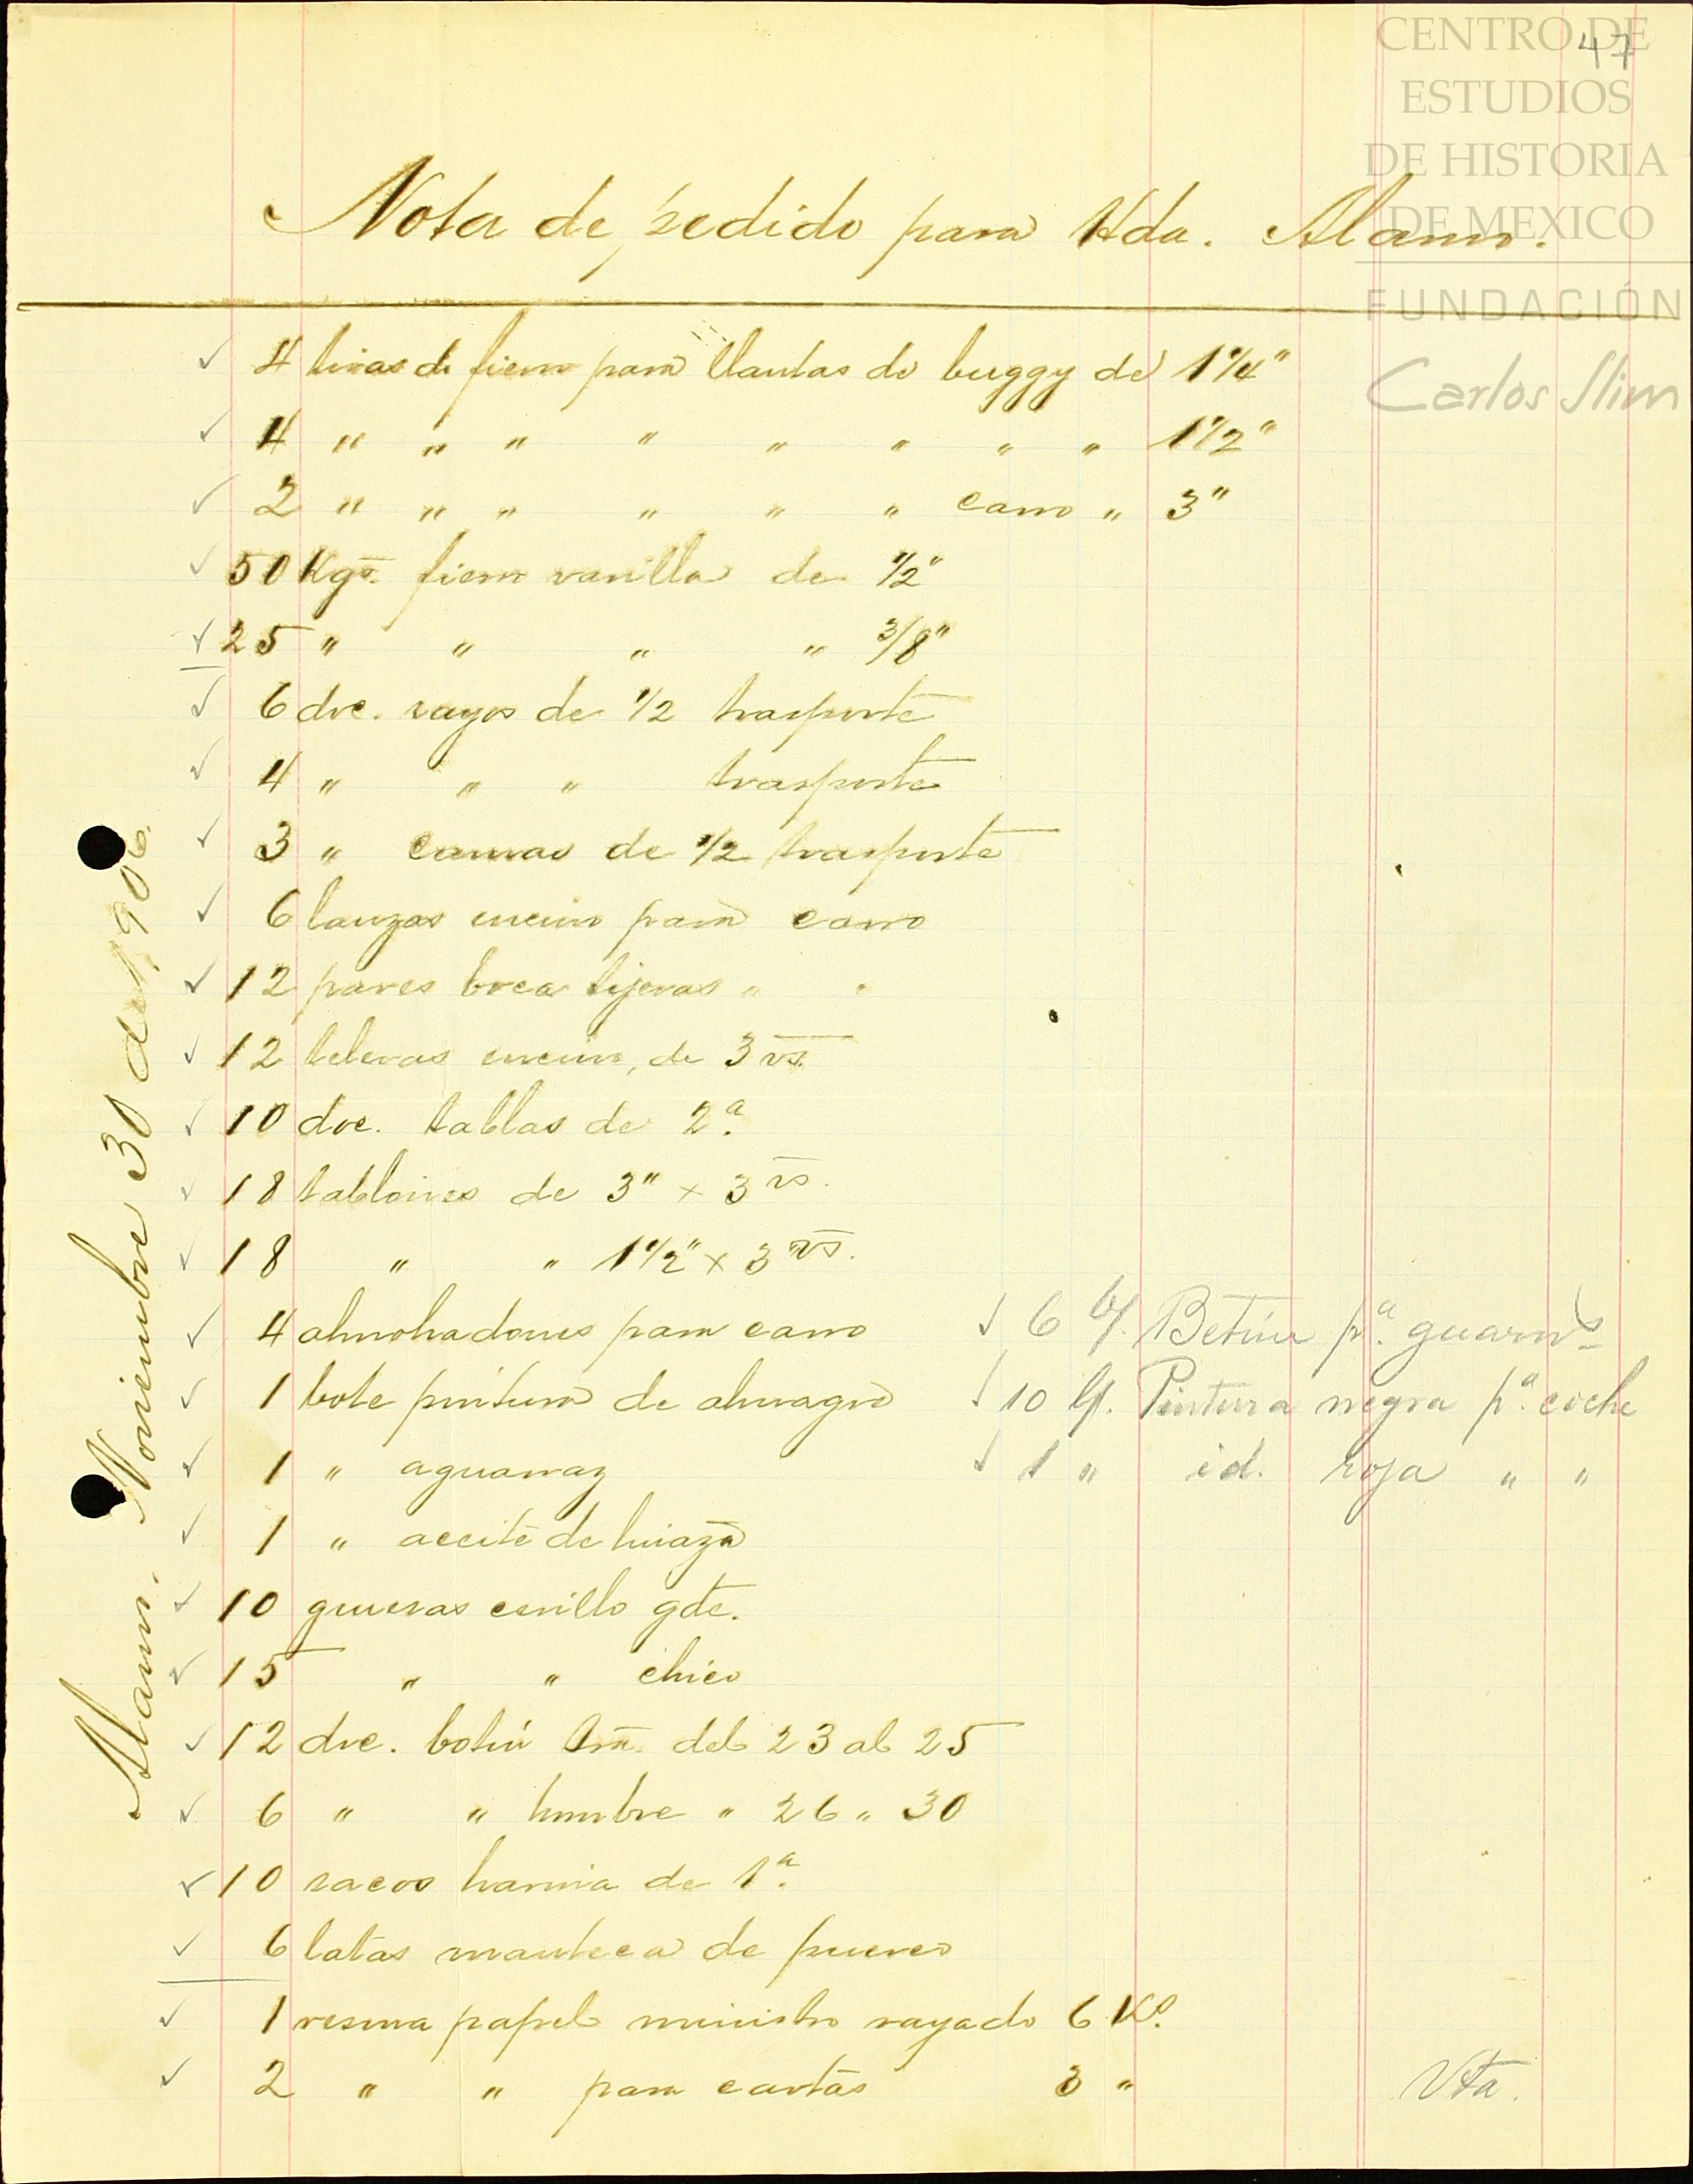 47
CENTRO DE
ESTUDIOS
DE HISTORIA
DE MEXICO
FUNDACIÓN
Carlos Slim
Nota de pedido para Hda. Alamo.
4 tiras de fierro para llantas de buggy de 1 1/4"
4 " " " " " " " " 1 1/2"
2 " " " " " " carro " 3"
50 Kgs. fierro varilla de 1/2"
25 " " " " 3/8"
6 doc. rayos de 1/2 trasporte
4 " " " trasporte
3 " camas de 1/2 trasporte
6 lanzas encino para carro
12 pares brea tijeras " "
12 teleras encino, de 3 vs.
10 doc. tablas de 2ª
18 tablones de 3" x 3 vs.
18 " " 1 1/2" x 3 vs.
4 almohadones para carro
1 bote pintura de almagre
1 " aguarraz
1 " aceite de linaza
10 gruesas cerillo gde.
15 " " chico
12 doc. botin Sra. del 23 al 25
6 " " hombre " 26 " 30
10 sacos harina de 1ª
6 latas manteca de puerco
1 resma papel ministro rayado 6 Ko.
2 " " para cartas 3 "
6 Betún pª guarns
10 Pintura negra pª coche
1 " id. roja " "
Vta.
Alamo. Noviembre 30 de 1906.